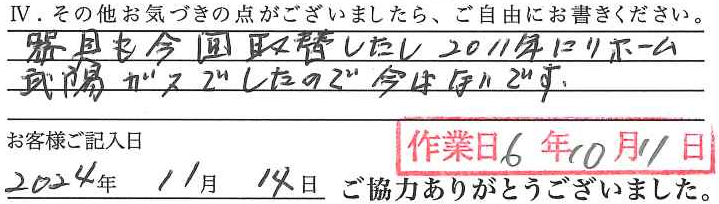 Ⅳ．その他お気づきの点がございましたら、ご自由にお書きください。
器具も今回取替したし 2011年にリホーム
武陽ガスでしたので今はないです.
お客様ご記入日
作業日6年10月11日
2024年 11月 14日 ご協力ありがとうございました。